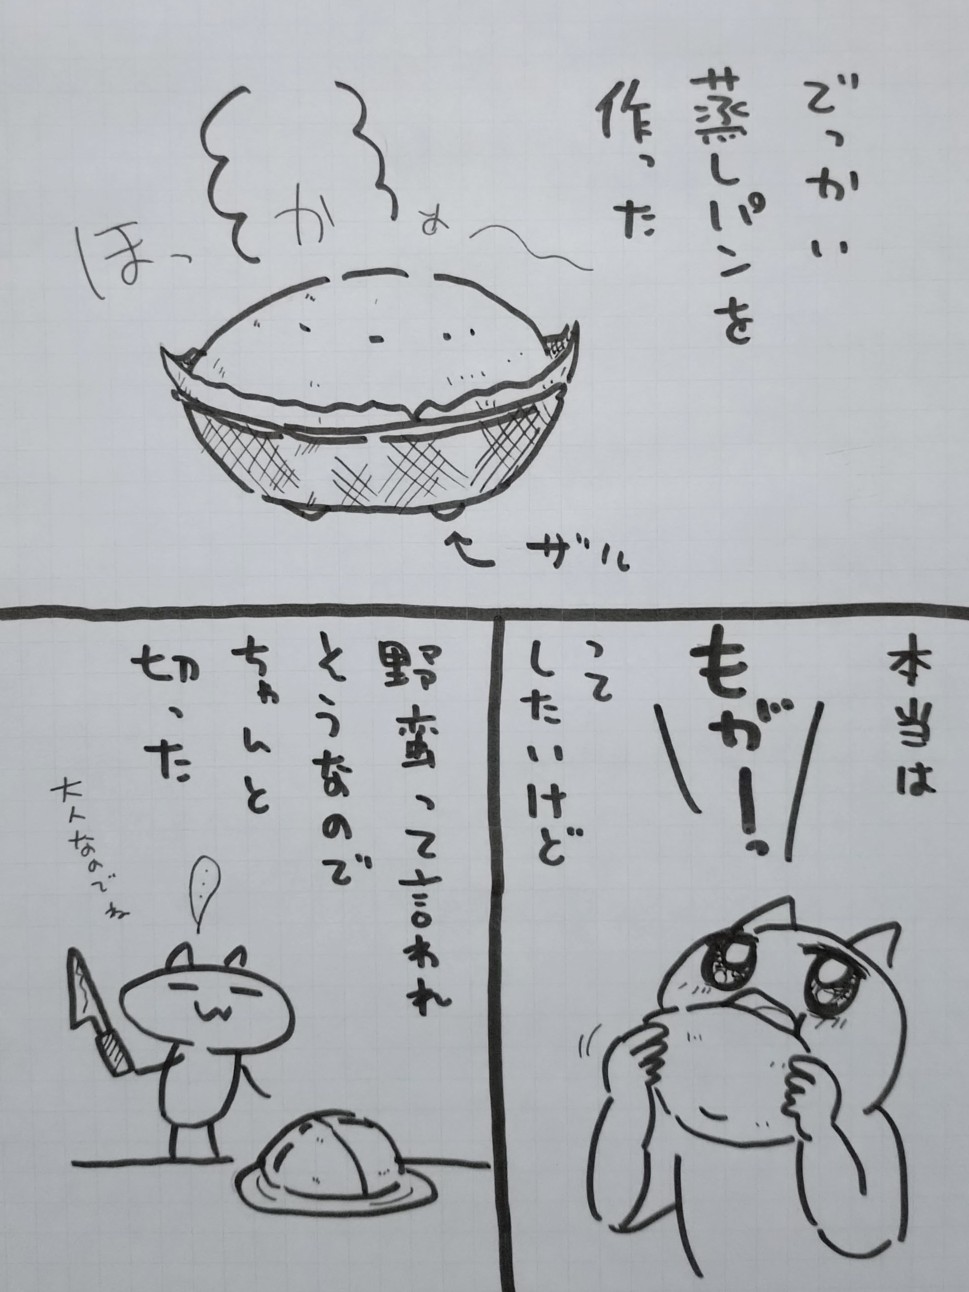 でっかい
蒸しパンを
作った
ほっかぁ〜
ザル
本当は
もがーっ
って
したいけど
野蛮って言われ
そうなので
ちゃんと
切った
大人なのでね